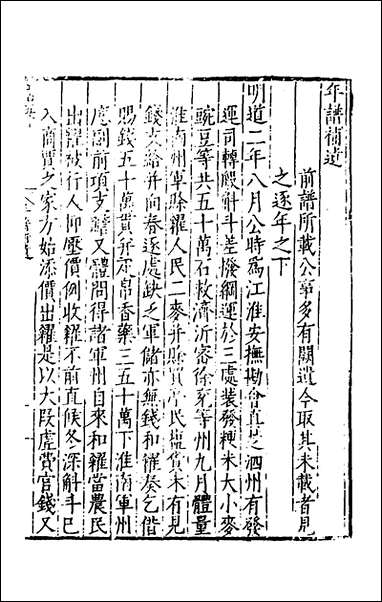 年譜補遺
前譜所載公事多有闕遺今取其未載者見
之逐年之下
明道二年八月公時爲江淮安撫勘會真楚泗州有發
運司轉般斛斗差撥綱運於三處裝發粳米大小麥
豌豆等共五十萬石救濟沂密徐兖等州九月體量
淮南州軍除糴人民二麥并
錢支給并向春逐處缺乏軍儲亦無錢和糴奏乞借
賜錢五十萬貫并疋帛香藥三五十萬下淮南軍州
應副前項支
又體問得諸軍州自來和糴當農民
出糶被行人仰壓價例收糴不前直候冬深斛斗已
入商賈之家方始添價出糴是以大段虛費官錢又